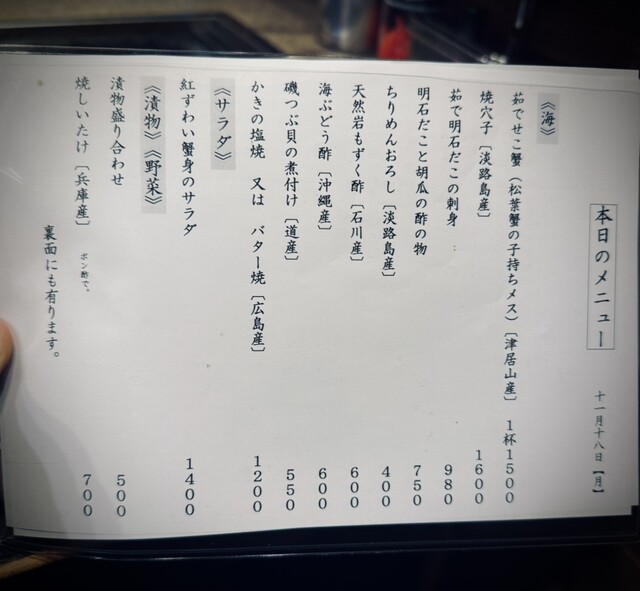 本日のメニュー　十一月十八日【月】
《海》
茹でせこ蟹（松葉蟹の子持ちメス）〔津居山産〕　１杯１５００
焼穴子〔淡路島産〕　１６００
茹で明石だこの刺身　９８０
明石だこと胡瓜の酢の物　７５０
ちりめんおろし〔淡路島産〕　４００
天然岩もずく酢〔石川産〕　６００
海ぶどう酢〔沖縄産〕　６００
磯つぶ貝の煮付け〔道産〕　５５０
かきの塩焼　又は　バター焼〔広島産〕　１２００
《サラダ》
紅ずわい蟹身のサラダ　１４００
《漬物》《野菜》
漬物盛り合わせ　５００
焼しいたけ〔兵庫産〕　ポン酢で。　７００
裏面にも有ります。